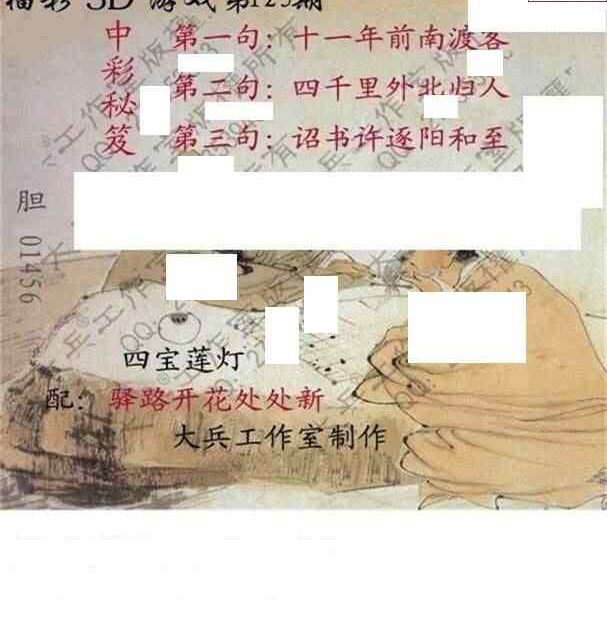 福彩3D游戏第125期
中彩秘笈
第一句：十一年前南渡客
第二句：四千里外北归人
第三句：诏书许逐阳和至
胆 01456
四宝莲灯
配：驿路开花处处新
大兵工作室制作